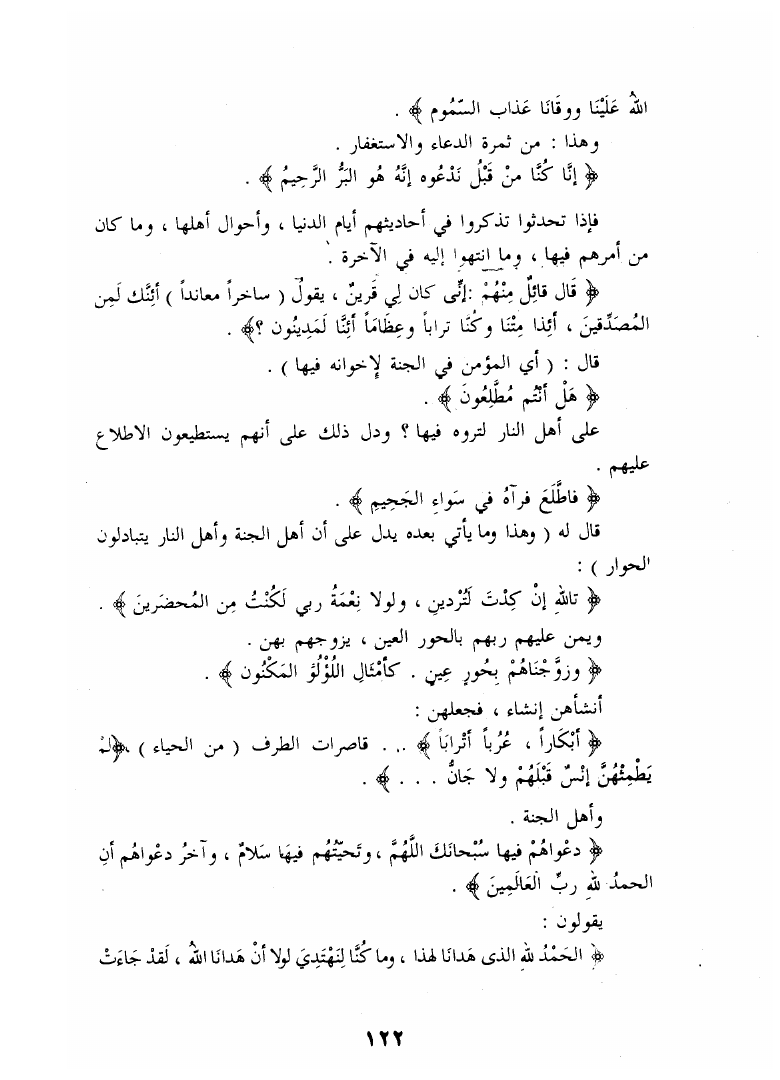 اللهُ عَلَيْنَا ووقَانَا عَذاب السَّمُوم ﴾ .
وهذا : من ثمرة الدعاء والاستغفار .
﴿ إنَّا كُنَّا منْ قَبْلُ نَدْعُوه إنَّهُ هُو البَرُّ الرَّحِيمُ ﴾ .
فإذا تحدثوا تذكروا في أحاديثهم أيام الدنيا ، وأحوال أهلها ، وما كان
من أمرهم فيها ، وما انتهوا إليه في الآخرة .
﴿ قَال قائِلٌ مِنْهُمْ : إنِّى كان لِي قَرينٌ ، يقولُ ( ساخراً معانداً ) أئِنَّك لَمِن
المُصَدِّقينَ ، أئِذا مِتْنَا وكُنَّا تراباً وعِظَاماً أئِنَّا لَمَدِينُون ؟﴾ .
قال : ( أي المؤمن في الجنة لإخوانه فيها ) .
﴿ هَلْ أنْتُم مُطَّلِعُونَ ﴾ .
على أهل النار لتروه فيها ؟ ودل ذلك على أنهم يستطيعون الاطلاع
عليهم .
﴿ فاطَّلَعَ فرآهُ في سَواءِ الجَحِيمِ ﴾ .
قال له ( وهذا وما يأتي بعده يدل على أن أهل الجنة وأهل النار يتبادلون
الحوار ) :
﴿ تاللهِ إنْ كِدْتَ لَتُرْدينِ ، ولولا نِعْمَةُ ربي لَكُنْتُ مِن المُحضَرينَ ﴾ .
ويمن عليهم ربهم بالحور العين ، يزوجهم بهن .
﴿ وزوَّجْنَاهُمْ بِحُورٍ عِينٍ . كأمْثَالِ اللُؤْلُؤَ المَكْنُون ﴾ .
أنشأهن إنشاء ، فجعلهن :
﴿ أبْكَاراً ، عُرُباً أتْرابَاً ﴾ ... قاصرات الطرف ( من الحياء ) ، ﴿لمْ
يَطْمِثْهُنَّ إنْسٌ قَبْلَهُمْ ولا جَانٌّ . . . ﴾ .
وأهل الجنة .
﴿ دعْواهُمْ فيها سُبْحانَكَ اللَّهُمَّ ، وتَحيّتُهُم فيهَا سَلامٌ ، وآخرُ دعْواهُم أنِ
الحمدُ للهِ ربِّ العَالَمِينَ ﴾ .
يقولون :
﴿ الحَمْدُ للهِ الذى هَدانَا لهذا ، وما كُنَّا لِنَهْتَدِيَ لولا أنْ هَدانَا اللهُ ، لَقدْ جَاءَتْ
١٢٢